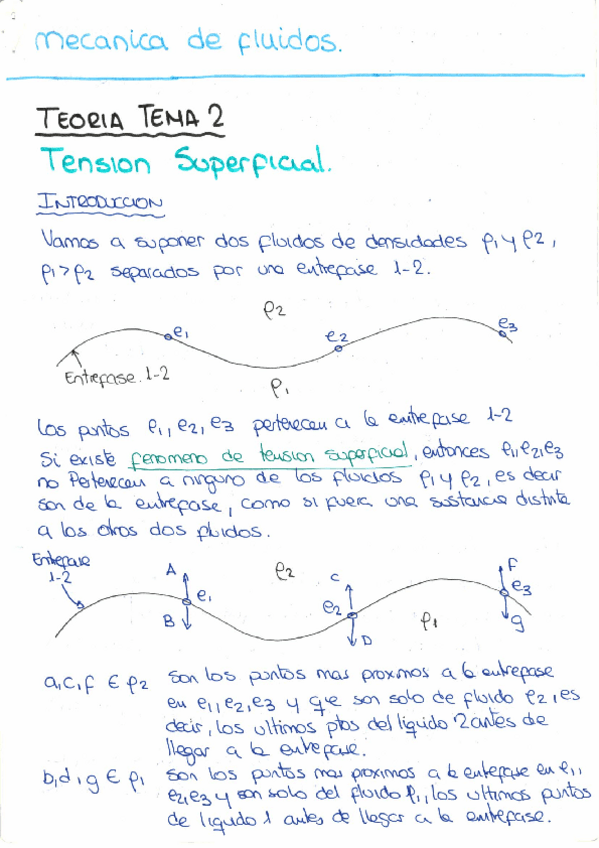 mecanica de fluidos.
TEORIA TEMA 2
Tension Superficial.
INTRODUCCION
Vamos a suponer dos fluidos de densidades ρ1 y ρ2,
ρ1>ρ2 separados por una entrefase 1-2.
ρ2
e1
e2
e3
Entrefase 1-2
ρ1
Los puntos e1, e2, e3 pertenecen a la entrefase 1-2
Si existe fenomeno de tension superficial, entonces e1, e2, e3
no pertenecen a ninguno de los fluidos ρ1 y ρ2, es decir
son de la entrefase, como si fuera una sustancia distinta
a los otros dos fluidos.
Entrefase
1-2
A
e1
B
ρ2
C
e2
D
ρ1
F
e3
g
a, c, f ∈ ρ2 son los puntos mas proximos a la entrefase
en e1, e2, e3 y que son solo de fluido ρ2, es
decir, los ultimos ptos del liquido 2 antes de
llegar a la entrefase.
b, d, g ∈ ρ1 son los puntos mas proximos a la entefase en e1,
e2, e3 y son solo del fluido ρ1, los ultimos puntos
de liquido 1 antes de llegar a la entrefase.